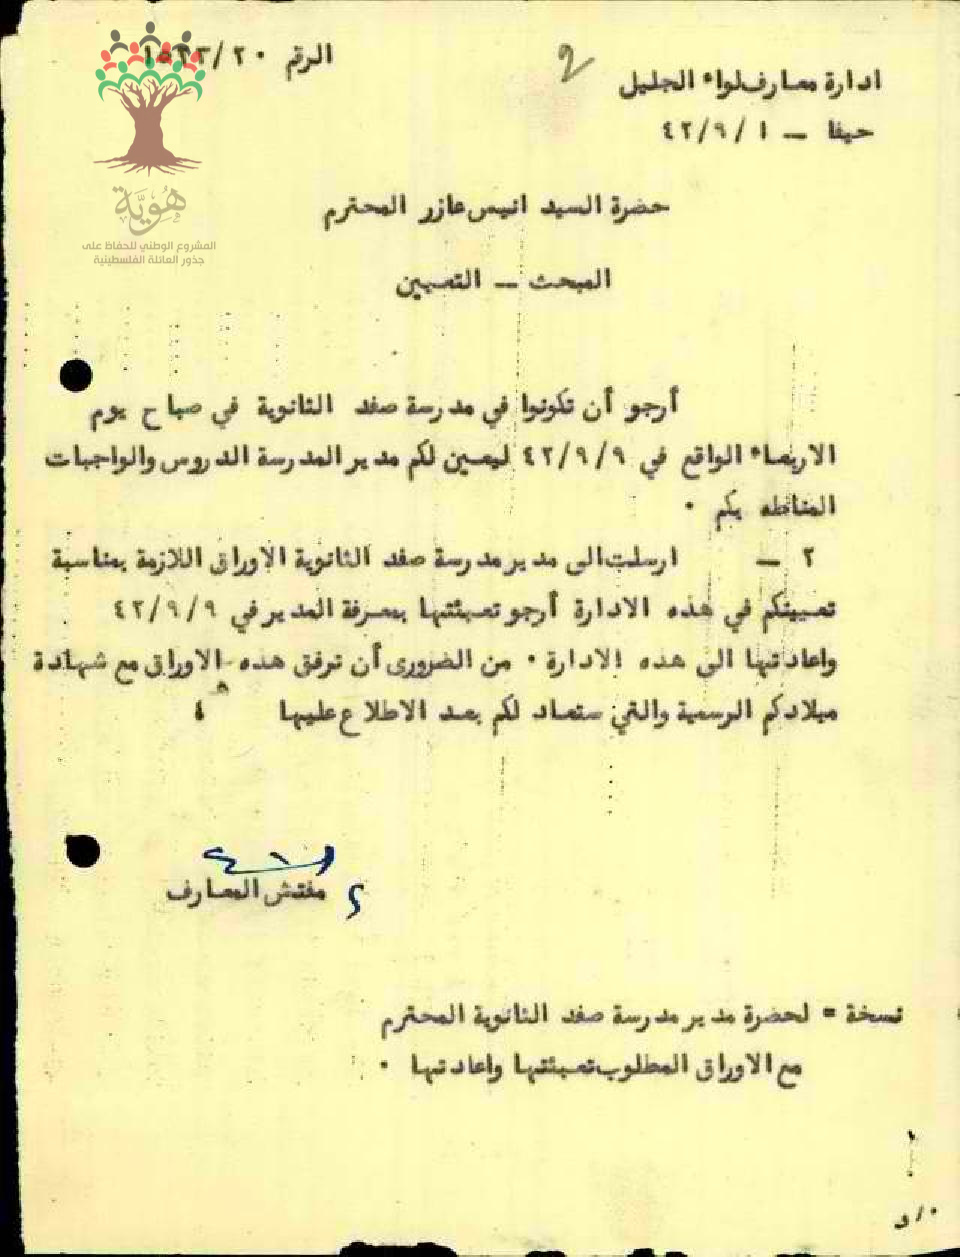 الرقم ٢٠/١٥٣٣
2
ادارة معارف لواء الجليل
حيفا — ٤٢/٩/١
هُوِيَّة
المشروع الوطني للحفاظ على
جذور العائلة الفلسطينية
حضرة السيد انيس عازر المحترم
المبحث — التعيين
أرجو أن تكونوا في مدرسة صفد الثانوية في صباح يوم
الاربعاء الواقع في ٤٢/٩/٩ ليعين لكم مدير المدرسة الدروس والواجبات
المناطه بكم ٠
٢ — ارسلت الى مدير مدرسة صفد الثانوية الاوراق اللازمة بمناسبة
تعيينكم في هذه الادارة أرجو تعبئتها بمعرفة المدير في ٤٢/٩/٩
واعادتها الى هذه الادارة ٠ من الضرورى أن ترفق هذه الاوراق مع شهادة
ميلادكم الرسمية والتي ستعاد لكم بعد الاطلاع عليها
مفتش المعارف
نسخة = لحضرة مدير مدرسة صفد الثانوية المحترم
مع الاوراق المطلوب تعبئتها واعادتها ٠